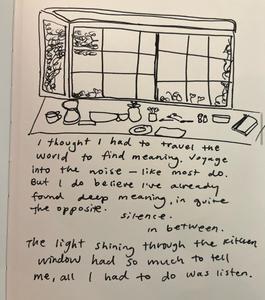 I thought I had to travel the
world to find meaning. Voyage
into the noise — like most do.
But I do believe I've already
found deep meaning, in quite
the opposite.
silence.
in between.
The light shining through the kitchen
window had so much to tell
me, all I had to do was listen.